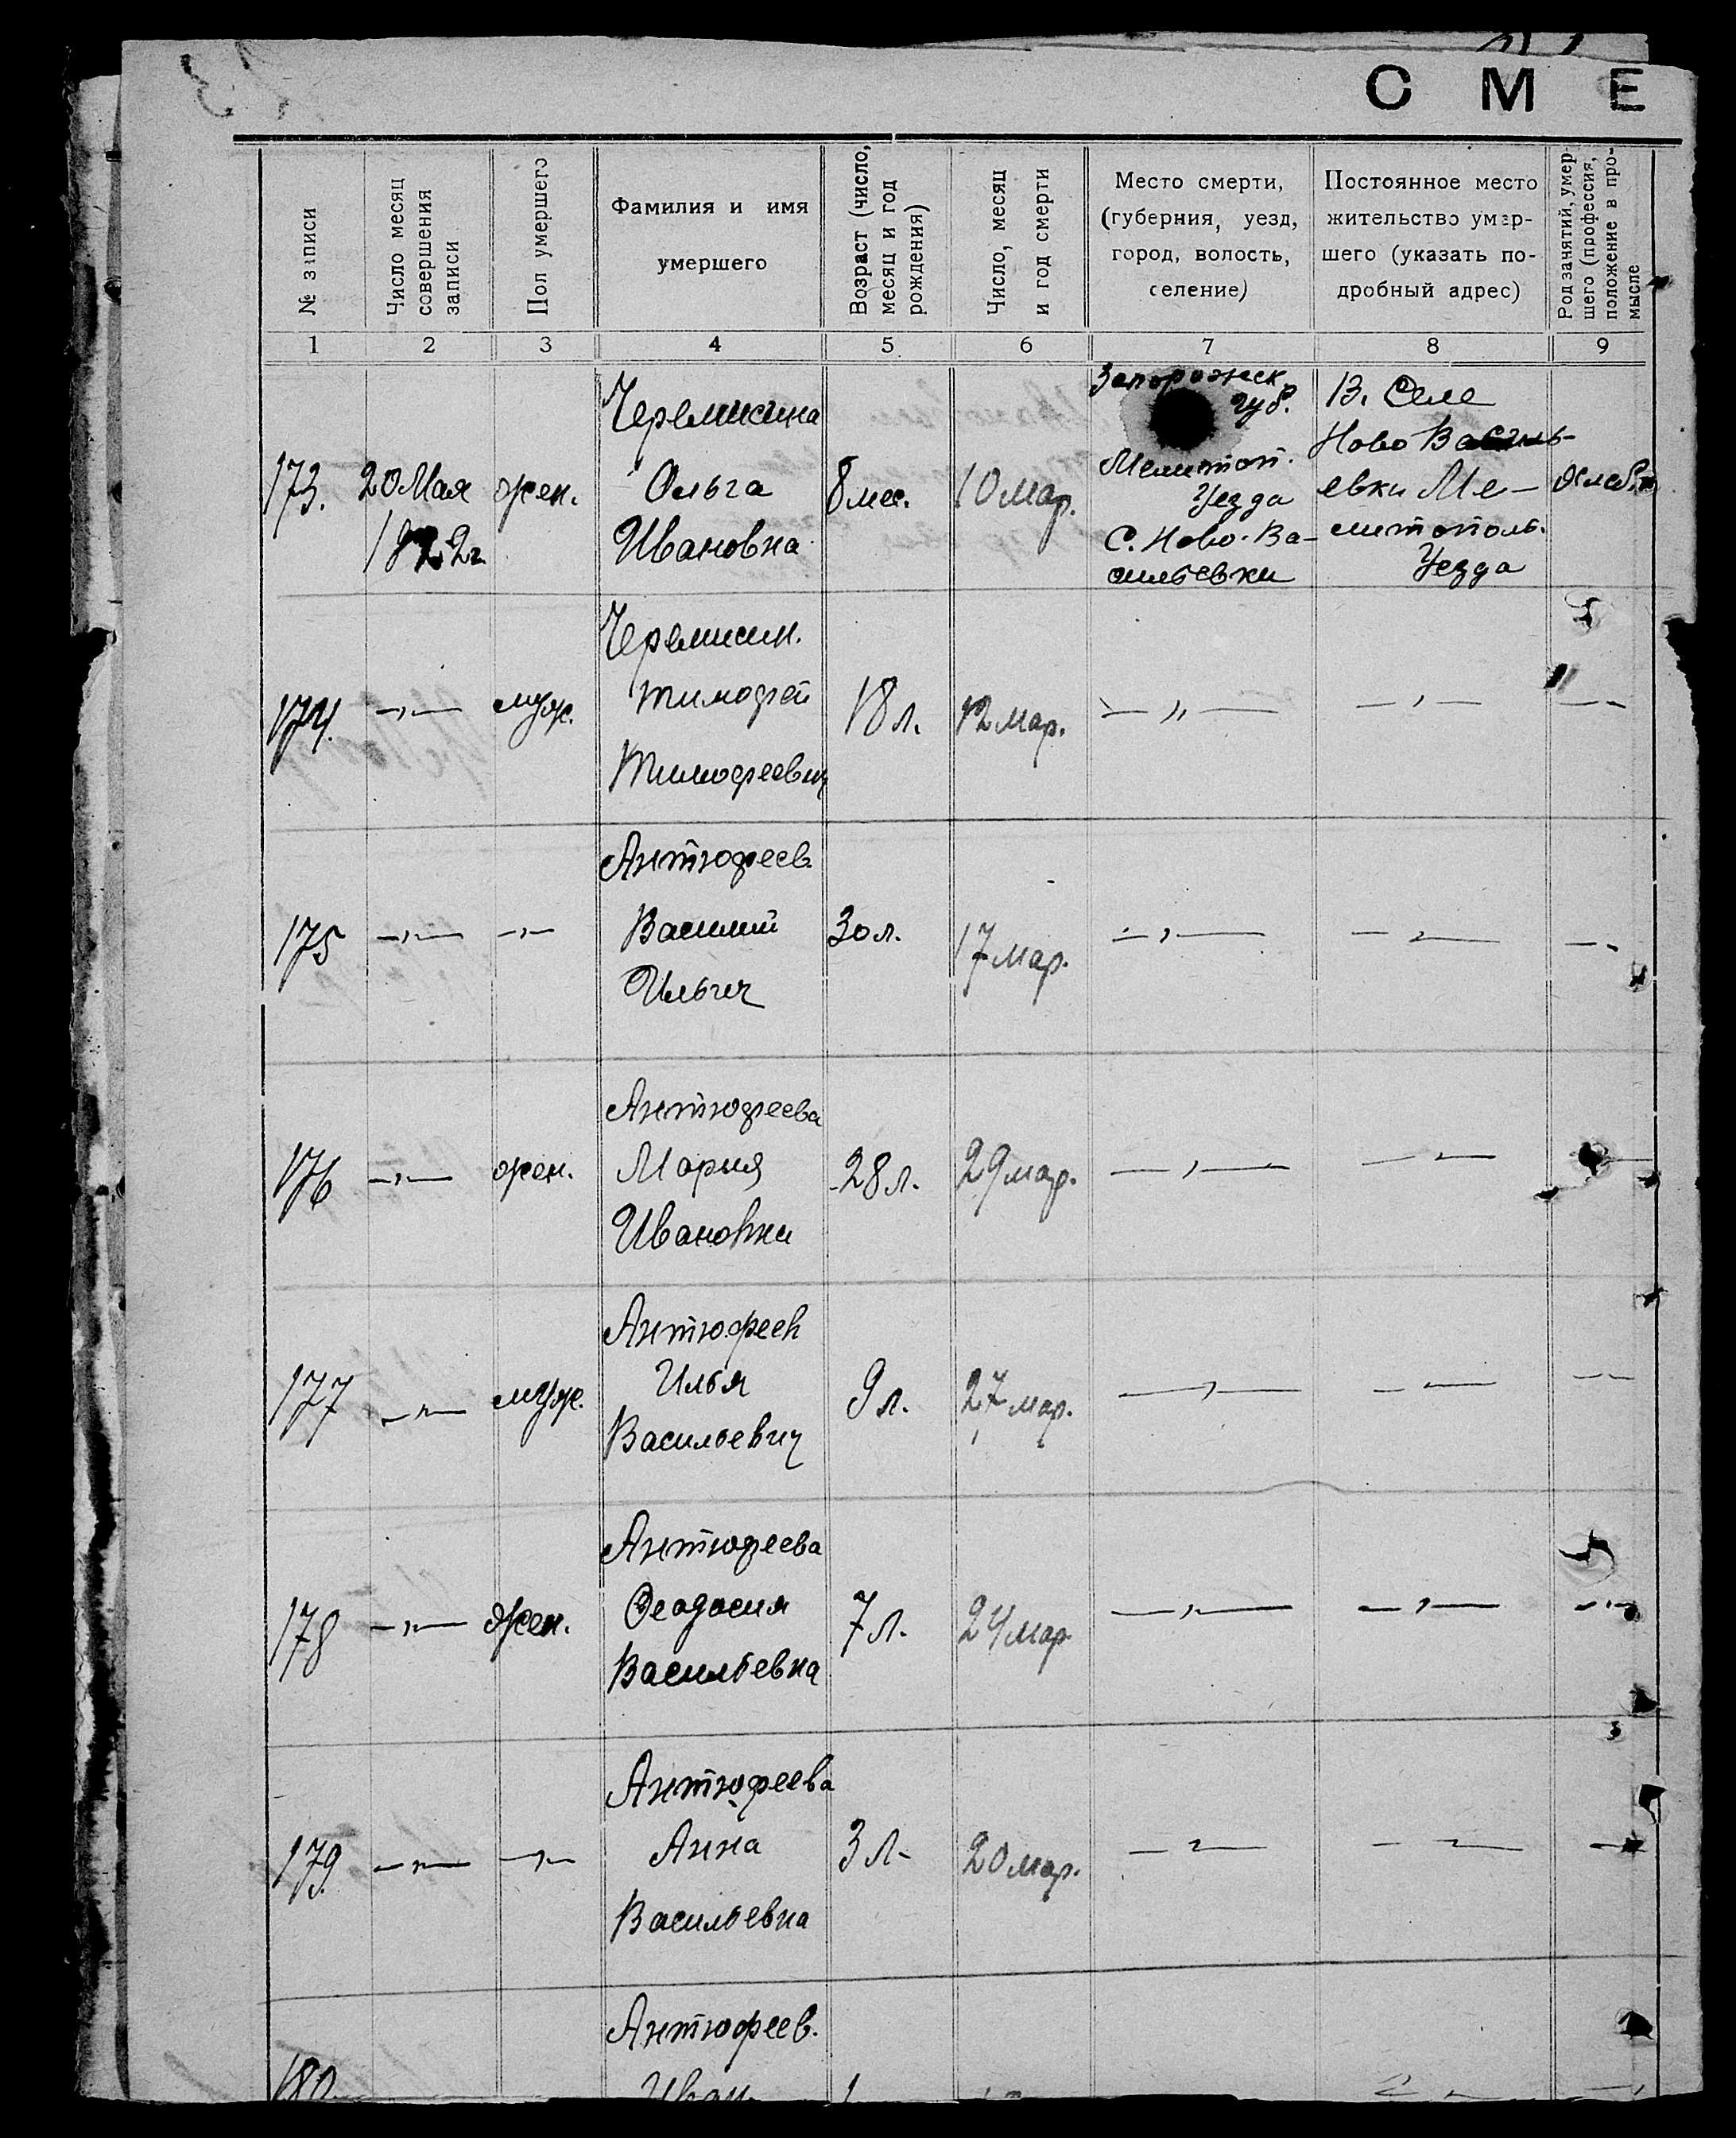 С М Е
№ записи
Число месяц
совершения
записи
Пол умершего
Фамилия и имя
умершего
Возраст (число,
месяц и год
рождения)
Число, месяц
и год смерти
Место смерти,
(губерния, уезд,
город, волость,
селение)
Постоянное место
жительство умер-
шего (указать по-
дробный адрес)
Род занятий, умер-
шего (профессия,
положение в про-
мысле
1 2 3 4 5 6 7 8 9
173.
20 Мая
1922г.
жен.
Черемисина
Ольга
Ивановна
8 мес.
10 мар.
Запорожск.
губ.
Мелитоп.
Уезда
С. Ново-Ва-
сильевки
В. Селе
Ново Василь-
евки Ме-
литополь.
Уезда
174.
—„—
муж.
Черемисин.
Тимофей
Тимофеевич
18 л.
12 мар.
—„—
—„—
—„—
175
—„—
—„—
Антюфеев
Василий
Ильич
30 л.
17 мар.
—„—
—„—
—„—
176
—„—
жен.
Антюфеева
Мария
Ивановна
28 л.
29 мар.
—„—
—„—
177
—„—
муж.
Антюфеев
Илья
Васильевич
9 л.
27 мар.
—„—
—„—
—„—
178
—„—
жен.
Антюфеева
Феодосия
Васильевна
7 л.
24 мар.
—„—
—„—
—„—
179.
—„—
—„—
Антюфеева
Анна
Васильевна
3 л.
20 мар.
—„—
—„—
—„—
180
Антюфеев.
Иван